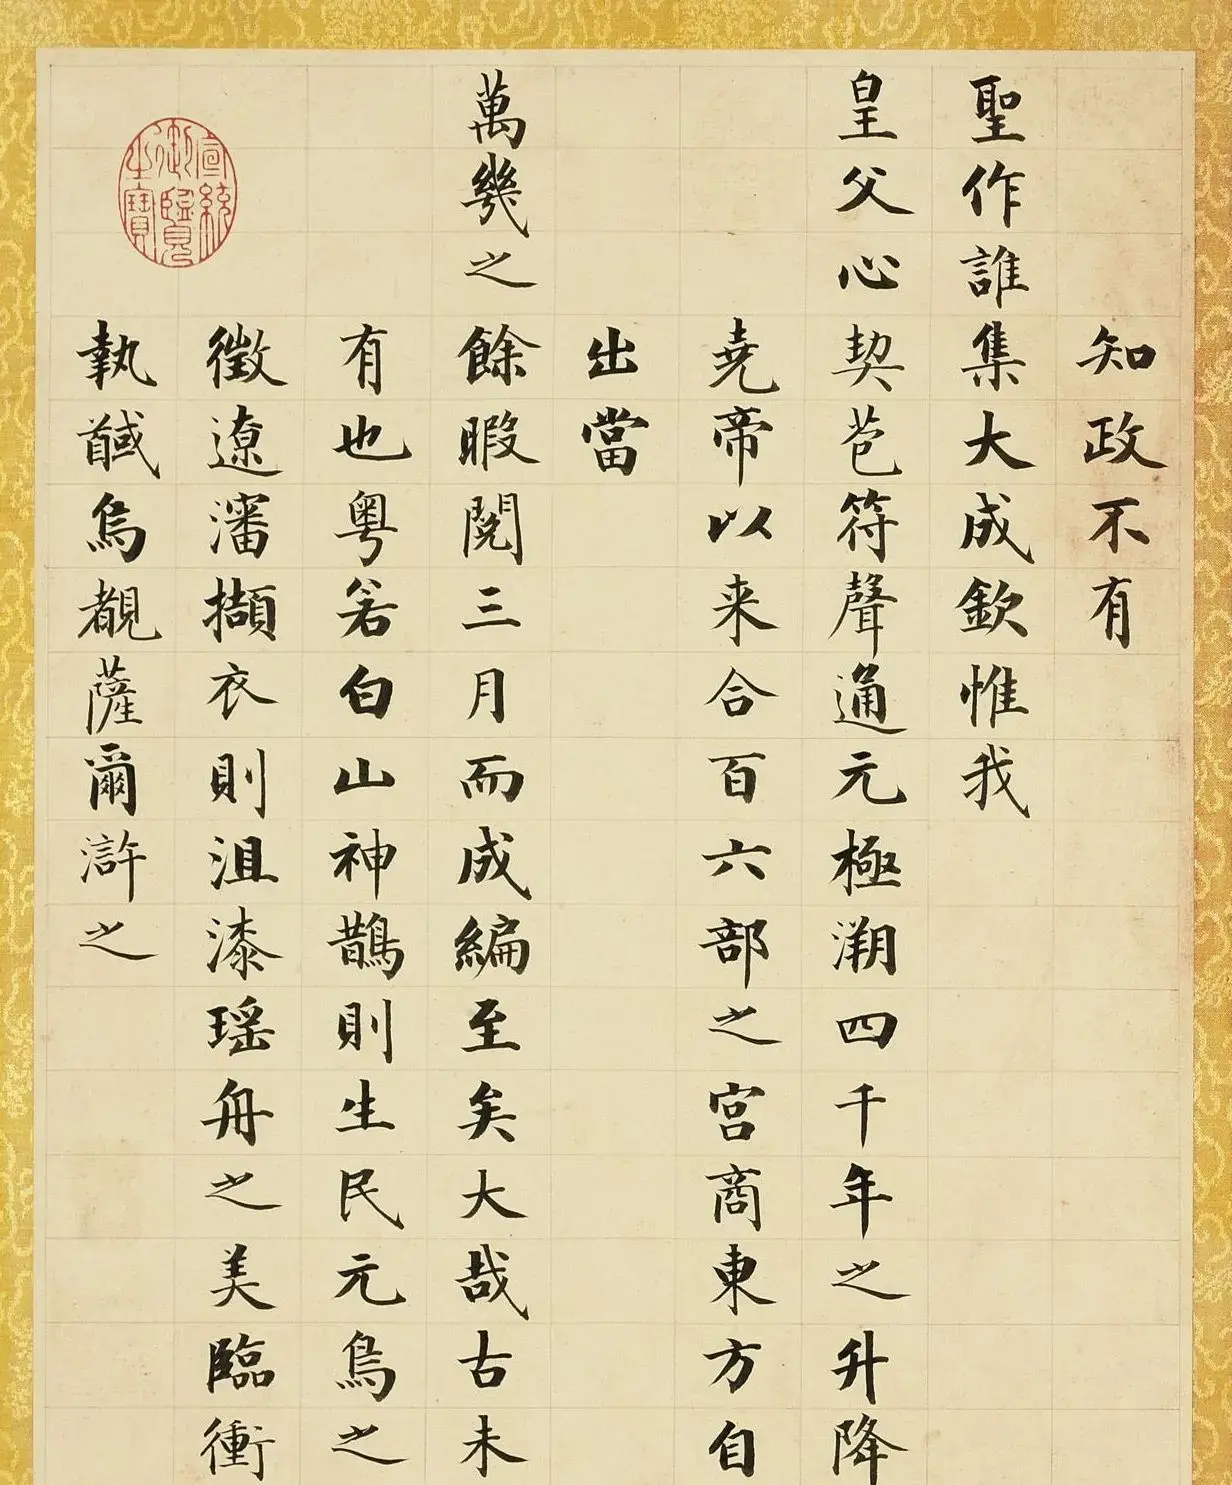 知政不有
聖作誰集大成欽惟我
皇父心契苞符聲通元極溯四千年之升降
堯帝以来合百六部之宫商東方自
出當
萬幾之餘暇閱三月而成編至矣大哉古未
有也粵若白山神鵲則生民元鳥之
徵遼瀋擷衣則沮漆瑶舟之美臨衝
執馘烏覩薩爾滸之
宣統御覽之寶